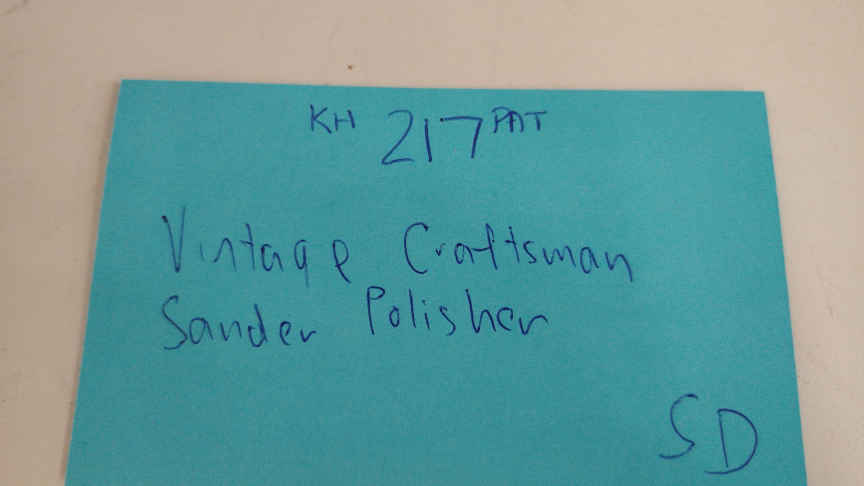 KH 217 PAT
Vintage Craftsman
Sander Polisher
SD